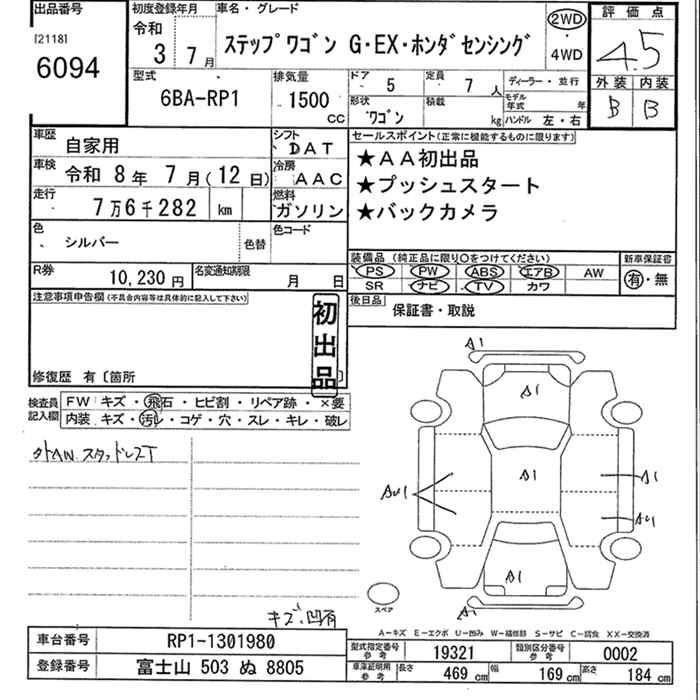 出品番号
[2118]
6094
初度登録年月
令和
3 7月
車名・グレード
ステップワゴン G・EX・ホンダセンシング
2WD
4WD
評価点
4.5
外装 内装
B B
型式
6BA-RP1
排気量
1500
cc
ドア 5
定員 7 人
形状 ワゴン
積載 kg
ディーラー・並行
モデル年式 年
ハンドル 左・右
車歴 自家用
シフト DAT
車検 令和 8年 7月(12日)
冷房 AAC
走行 7万6千282 km
燃料 ガソリン
色 シルバー
色替
色コード
R券 10,230円
名変通知期限 月 日
セールスポイント(正常に機能するものに限ります)
★AA初出品
★プッシュスタート
★バックカメラ
装備品(純正品に限り○をつけてください)
PS PW ABS エアB AW
SR ナビ TV カワ
新車保証書
有・無
後日品 保証書・取説
注意事項申告欄(不具合内容等は具体的に記入して下さい)
初出品
修復歴 有〔箇所 〕
検査員記入欄
FW キズ・飛石・ヒビ割・リペア跡・×要
内装 キズ・汚レ・コゲ・穴・スレ・キレ・破レ
外AW スタッドレスT
キズ、凹有
A1
A1
A1
A1
AU1
A1
AU1
A1
スペア
A-キズ E-エクボ U-凹み W-補修跡 S-サビ C-腐食 XX-交換済
車台番号 RP1-1301980
登録番号 富士山 503 ぬ 8805
型式指定番号 参考 19321
類別区分番号 参考 0002
車庫証明用 参考 長さ 469 cm 幅 169 cm 高さ 184 cm